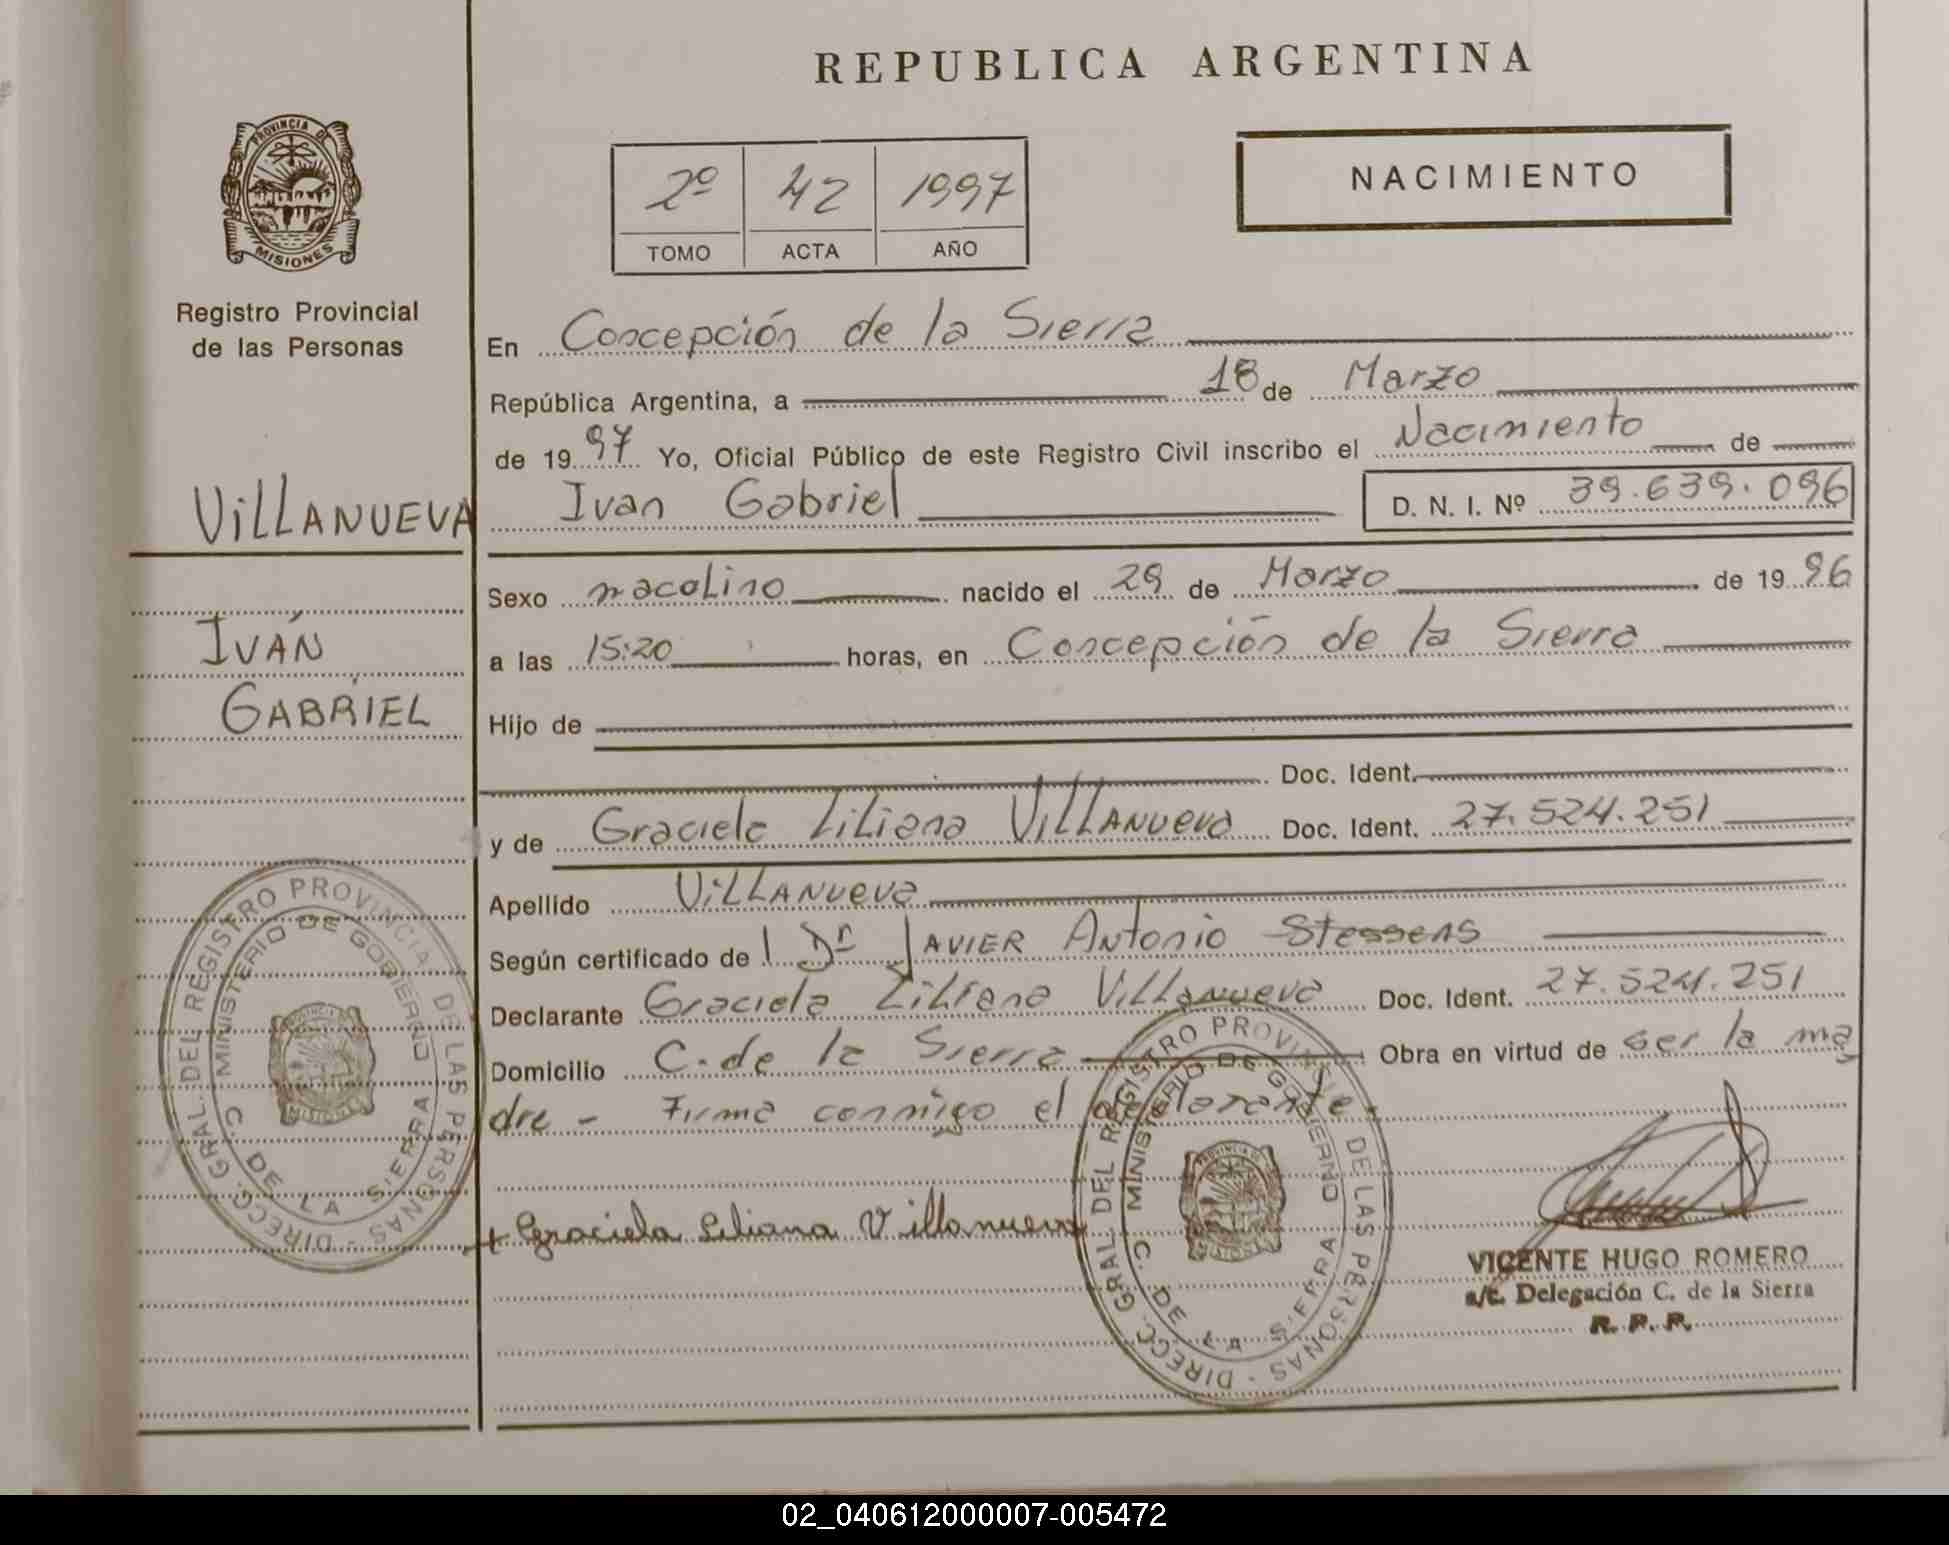 REPUBLICA ARGENTINA
PROVINCIA DE
MISIONES
Registro Provincial
de las Personas
2º 42 1997
TOMO ACTA AÑO
NACIMIENTO
En Concepción de la Sierra
República Argentina, a 18 de Marzo
de 1997 Yo, Oficial Público de este Registro Civil inscribo el Nacimiento de
VILLANUEVA
Ivan Gabriel D. N. I. Nº 39.639.096
Sexo macolino nacido el 29 de Marzo de 1996
IVÁN
a las 15:20 horas, en Concepción de la Sierra
GABRIEL
Hijo de
Doc. Ident.
y de Graciela Liliana Villanueva Doc. Ident. 27.524.251
Apellido Villanueva
Según certificado de Dr Javier Antonio Stessens
Declarante Graciela Liliana Villanueva Doc. Ident. 27.524.251
Domicilio C. de la Sierra Obra en virtud de ser la ma
dre - Firma conmigo el declarante.
+ Graciela Liliana Villanueva
DIRECC. GRAL. DEL REGISTRO PROVINCIAL DE LAS PERSONAS -
MINISTERIO DE GOBIERNO
C. DE LA SIERRA
MISIONES
DIRECC. GRAL. DEL REGISTRO PROVINCIAL DE LAS PERSONAS -
MINISTERIO DE GOBIERNO
C. DE LA SIERRA
PROVINCIA DE
MISIONES
VICENTE HUGO ROMERO
a/c. Delegación C. de la Sierra
R. P. P.
02_040612000007-005472